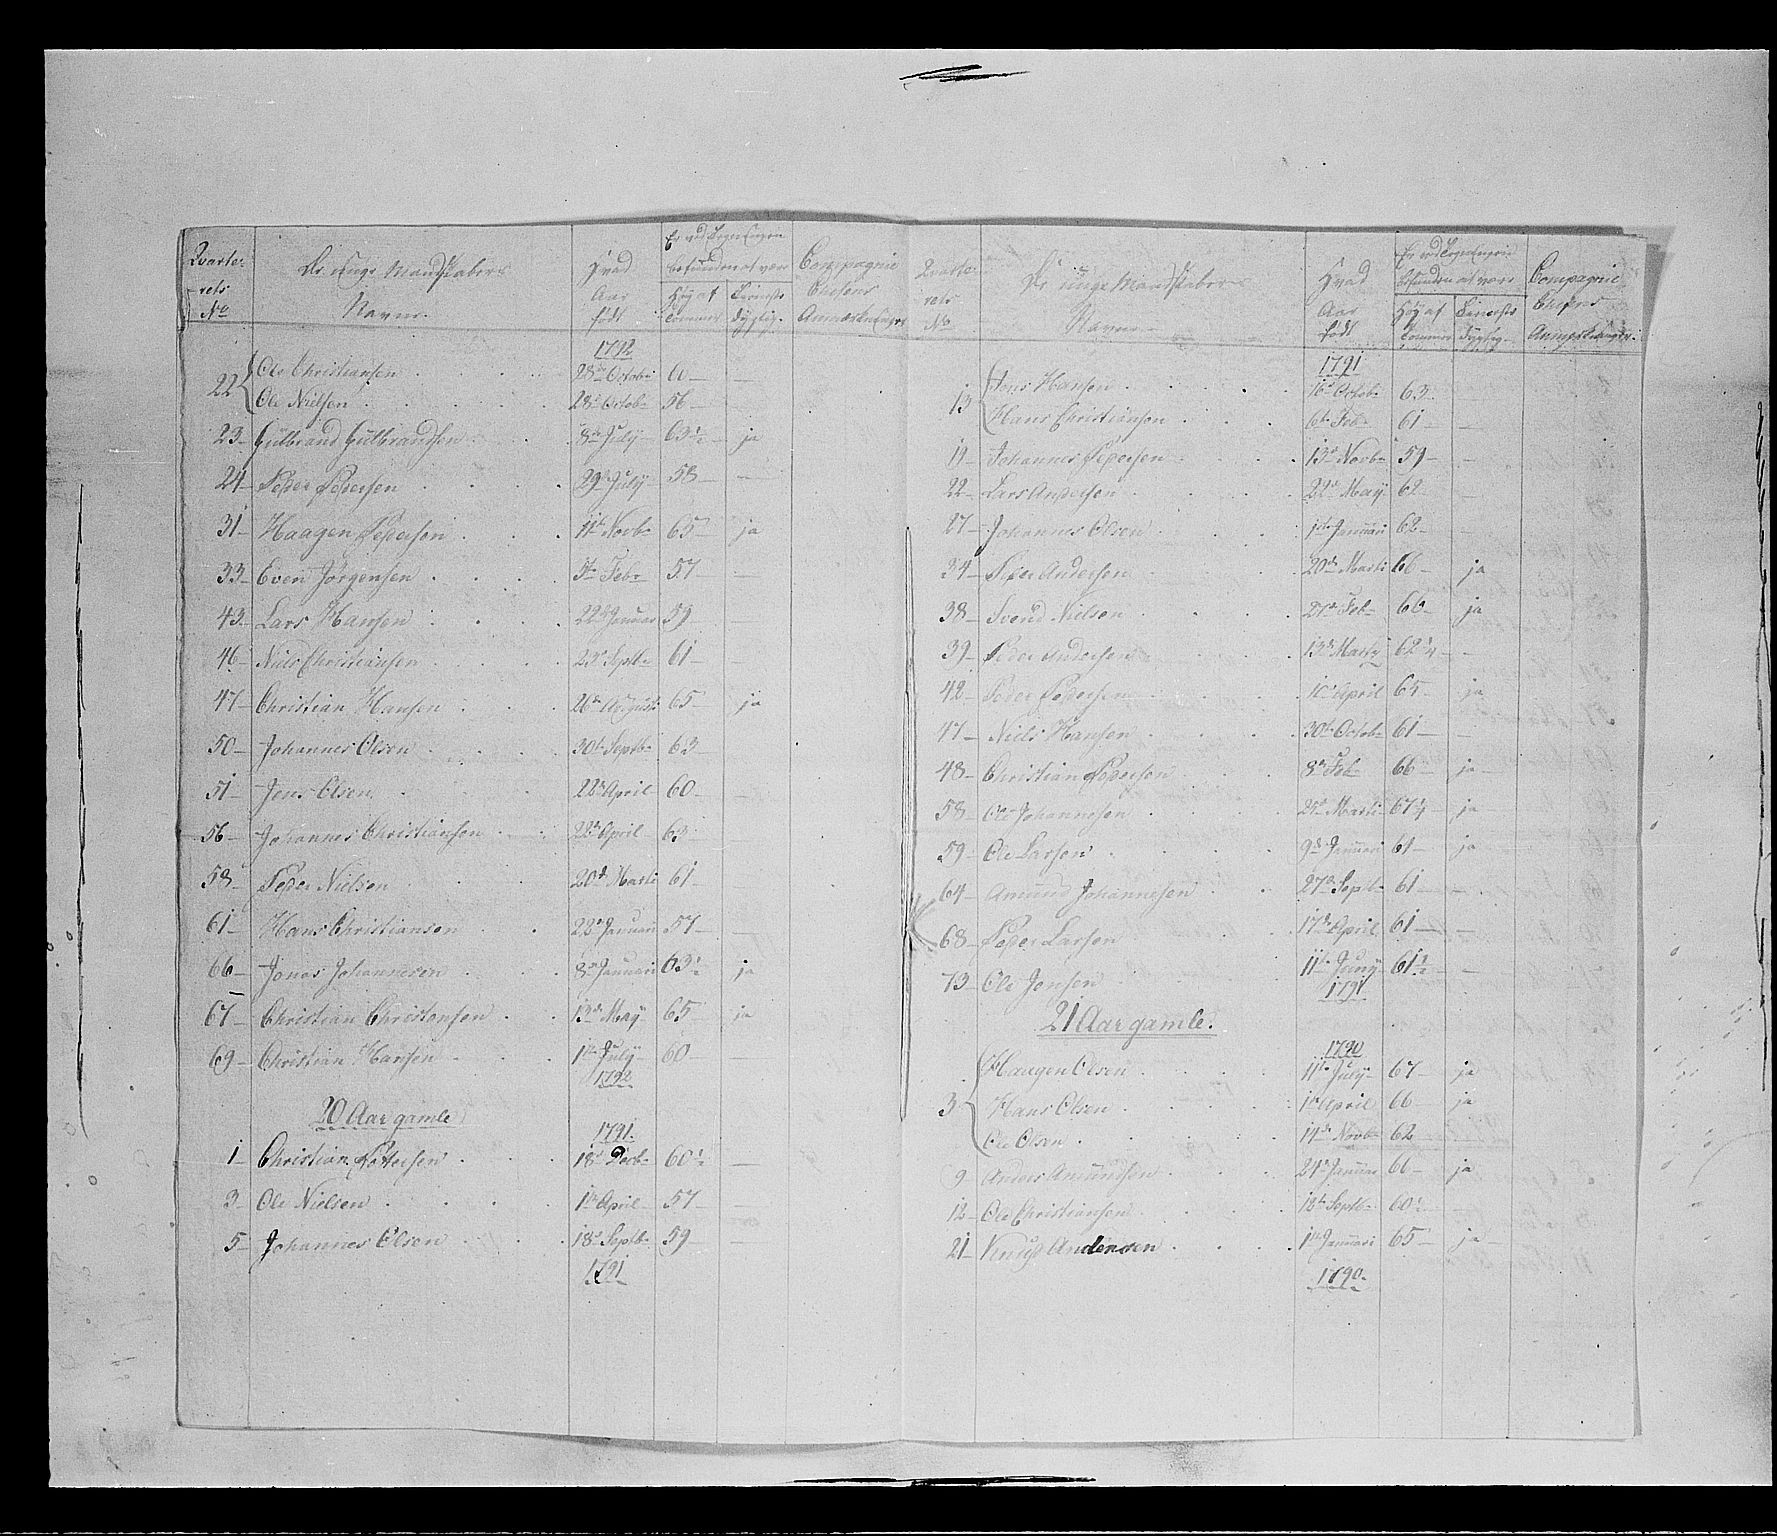 Qvarte-
rets
No
De unge Mandskabers
Navne.
Hvad
Aar
født
Er ved Sessionen
befunden at være
Høy af
Tommer
Tieniste
dygtig.
Compagnie
Chefens
Anmærkninger
1792
22 Ole Christiansen 28de Octobr — —
Ole Nielsen 28de Octobr 56 —
23 Gulbrand Gulbrandsen 8de July 63½ ja
24 Peder Pedersen 29de July 58 —
31 Haagen Pedersen 11te Novbr 65 ja
33 Even Jörgensen 5te Febr 57 —
43 Lars Hansen 22de Januar 59
46 Niels Christiansen 23de Septbr 61 —
47 Christian Hansen 26de Augusti 65 ja
50 Johannes Olsen 30te Septbr 63
51 Jens Olsen 22de April 60 —
56 Johannes Christiansen 22de April 63
58 Peder Nielsen 20de Marti 61
61 Hans Christiansen 22de Januari 57 —
66 Jonas Johannesen 8de Januari 63½ ja
67 Christian Christensen 13de May 65 ja
69 Christian Hansen 1te July 60 —
1792
20 Aar gamle
1791.
1 Christian Pettersen 18de Decbr 60½ —
3 Ole Nielsen 1te April 57 —
5 Johannes Olsen 18de Septbr 59 —
1791
Qvarte-
rets
No
De unge Mandskabers
Navne
Hvad
Aar
født
Er ved Sessionen
befunden at være
Høy af
Tommer
Tieniste
dygtig.
Compagnie
Chefens
Anmærkninger.
1791
13 Jens Hansen 16de Octobr 63
Hans Christiansen 6te Feb 61 —
19 Johannes Pedersen 13de Novbr 59 —
22 Lars Andersen 22de May 62 —
27 Johannes Olsen 1te Januari 62 —
34 Peder Andersen 20de Marti 66 ja
38 Svend Nielsen 27de Feb 66 ja
39 Peder Andersen 13de Marty 62¼ —
42 Peder Pedersen April 65 ja
47 Niels Hansen 30te Octobr 61 —
48 Christian Pedersen 8de Feb 66 ja
58 Ole Johannesen 25de Marti 67¼ ja
59 Ole Larsen 9de Januari 61 ja
64 Amund Johannesen 27de Septbr 61 —
68 Peder Larsen 17de April 61 —
73 Ole Jensen 11te Juny 61½ —
1791
21 Aar gamle.
1790
3 Haagen Olsen 11te July 67 ja
Hans Olsen 1te April 66 ja
Ole Olsen 14de Novbr 62 —
9 Anders Amundsen 24de Januar 66 ja
12 Ole Christiansen 18de Septbr 60½
21 Knud Andersen 1te Januari 65 ja
1790.